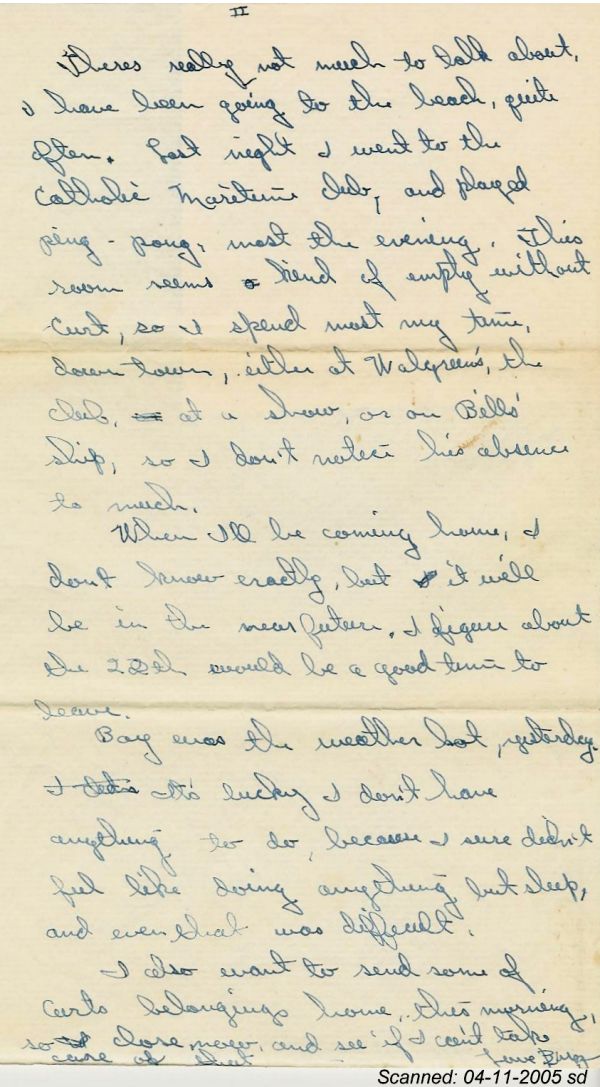 II
Theres really not much to talk about,
I have been going to the beach, quite
often. Last night I went to the
Catholic Maritime club, and played
ping-pong, most the evening. This
room seems kind of empty without
Curt, so I spend most my time,
down town, either at Walgreen's, the
club, at a show, or on Bills'
ship, so I don't notice his absence
to much.
When I'll be coming home, I
don't know exactly, but it will
be in the near future. I figure about
the 22th would be a good time to
leave.
Boy was the weather hot, yesterday.
It's lucky I don't have
anything to do, because I sure didn't
feel like doing anything but sleep,
and even that was difficult.
I also want to send some of
Curts belongings home, this morning,
so close now, and see if I can't take
care of that
Love
Scanned: 04-11-2005 sd